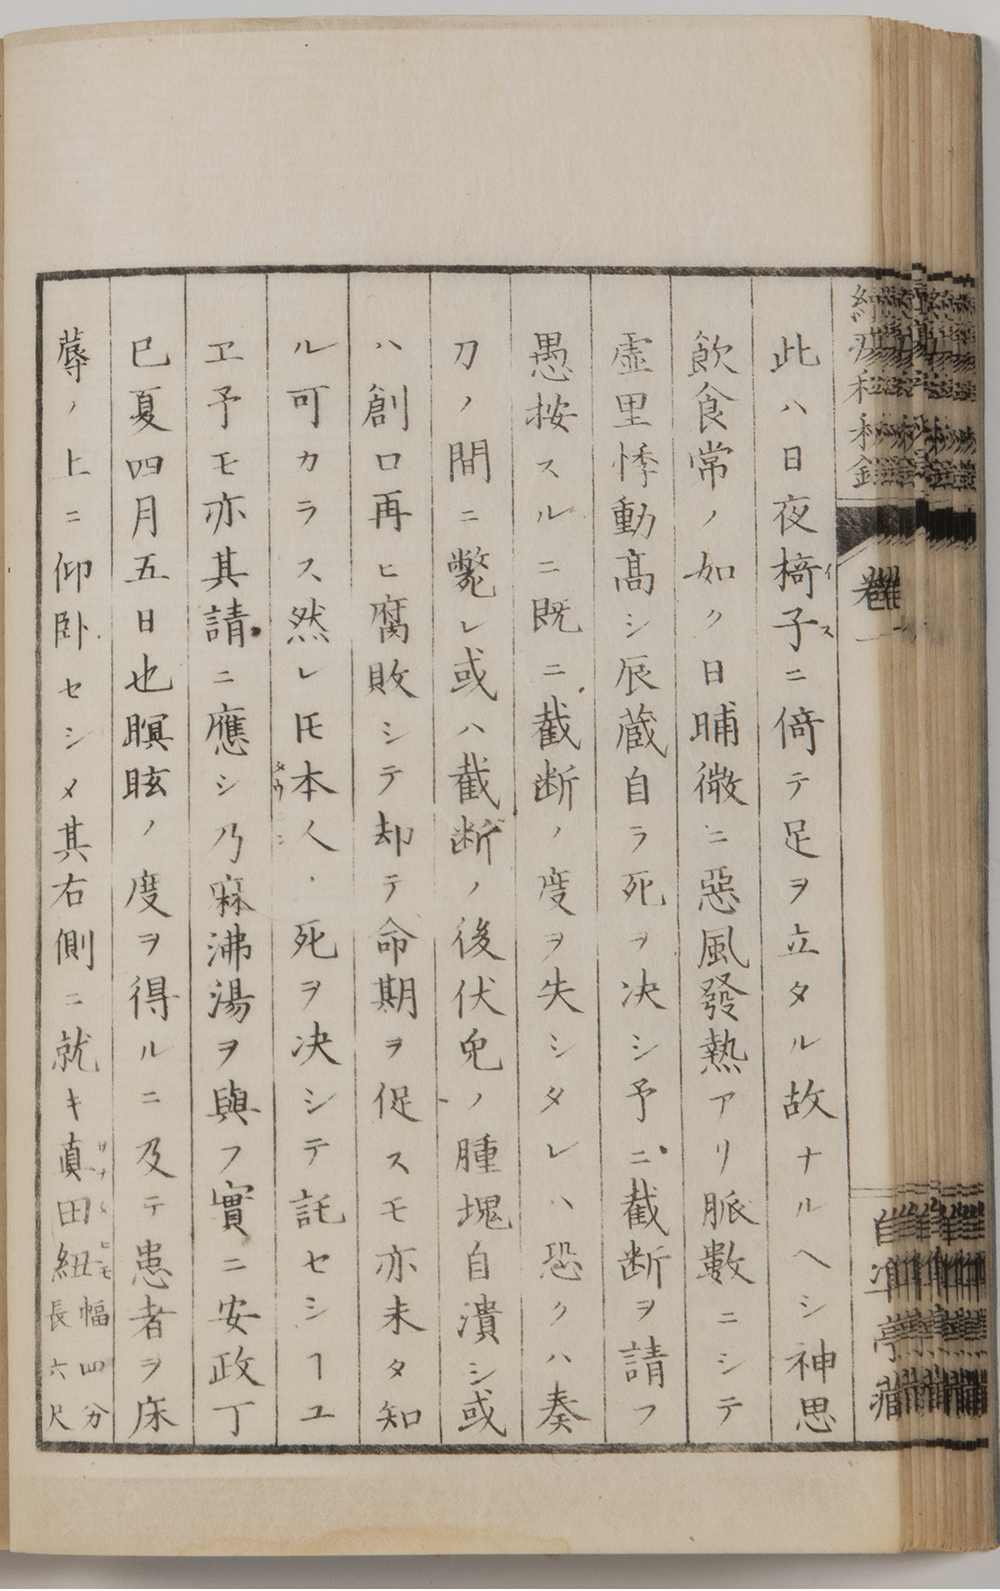 此ハ日夜椅子ニ倚テ足ヲ立タル故ナルヘシ神思
イス
飲食常ノ如ク日晡微ニ惡風發熱アリ脈數ニシテ
虚里悸動高シ辰蔵自ラ死ヲ决シ予ニ截断ヲ請フ
愚按スルニ既ニ截断ノ度ヲ失シタレハ恐クハ奏
刀ノ間ニ斃レ或ハ截断ノ後伏兎ノ腫塊自潰シ或
ハ創口再ヒ腐敗シテ却テ命期ヲ促スモ亦未タ知
ル可カラス然レ𪜈本人死ヲ决シテ託セシヿユ
ヱ予モ亦其請ニ應シ乃寐沸湯ヲ與フ實ニ安政丁
巳夏四月五日也瞑眩ノ度ヲ得ルニ及テ患者ヲ床
蓐ノ上ニ仰卧セシメ其右側ニ就キ真田紐
サナタヒモ
幅四分
長六尺